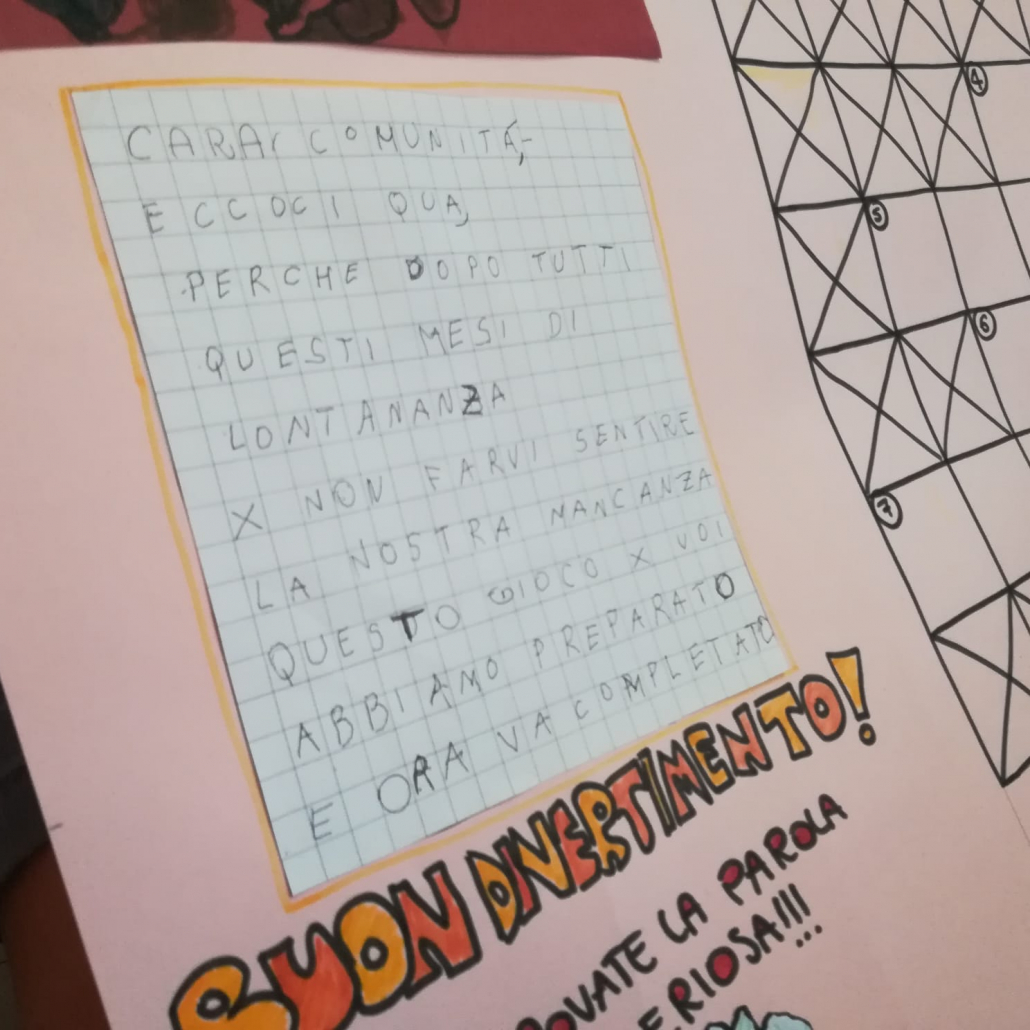 CARA COMUNITÁ,
ECCOCI QUA,
PERCHE DOPO TUTTI
QUESTI MESI DI
LONTANANZA
X NON FARVI SENTIRE
LA NOSTRA MANCANZA
QUESTO GIOCO X VOI
ABBIAMO PREPARATO
E ORA VA COMPLETATO
BUON DIVERTIMENTO!
OVATE LA PAROLA
ERIOSA!!!
4
5
6
7